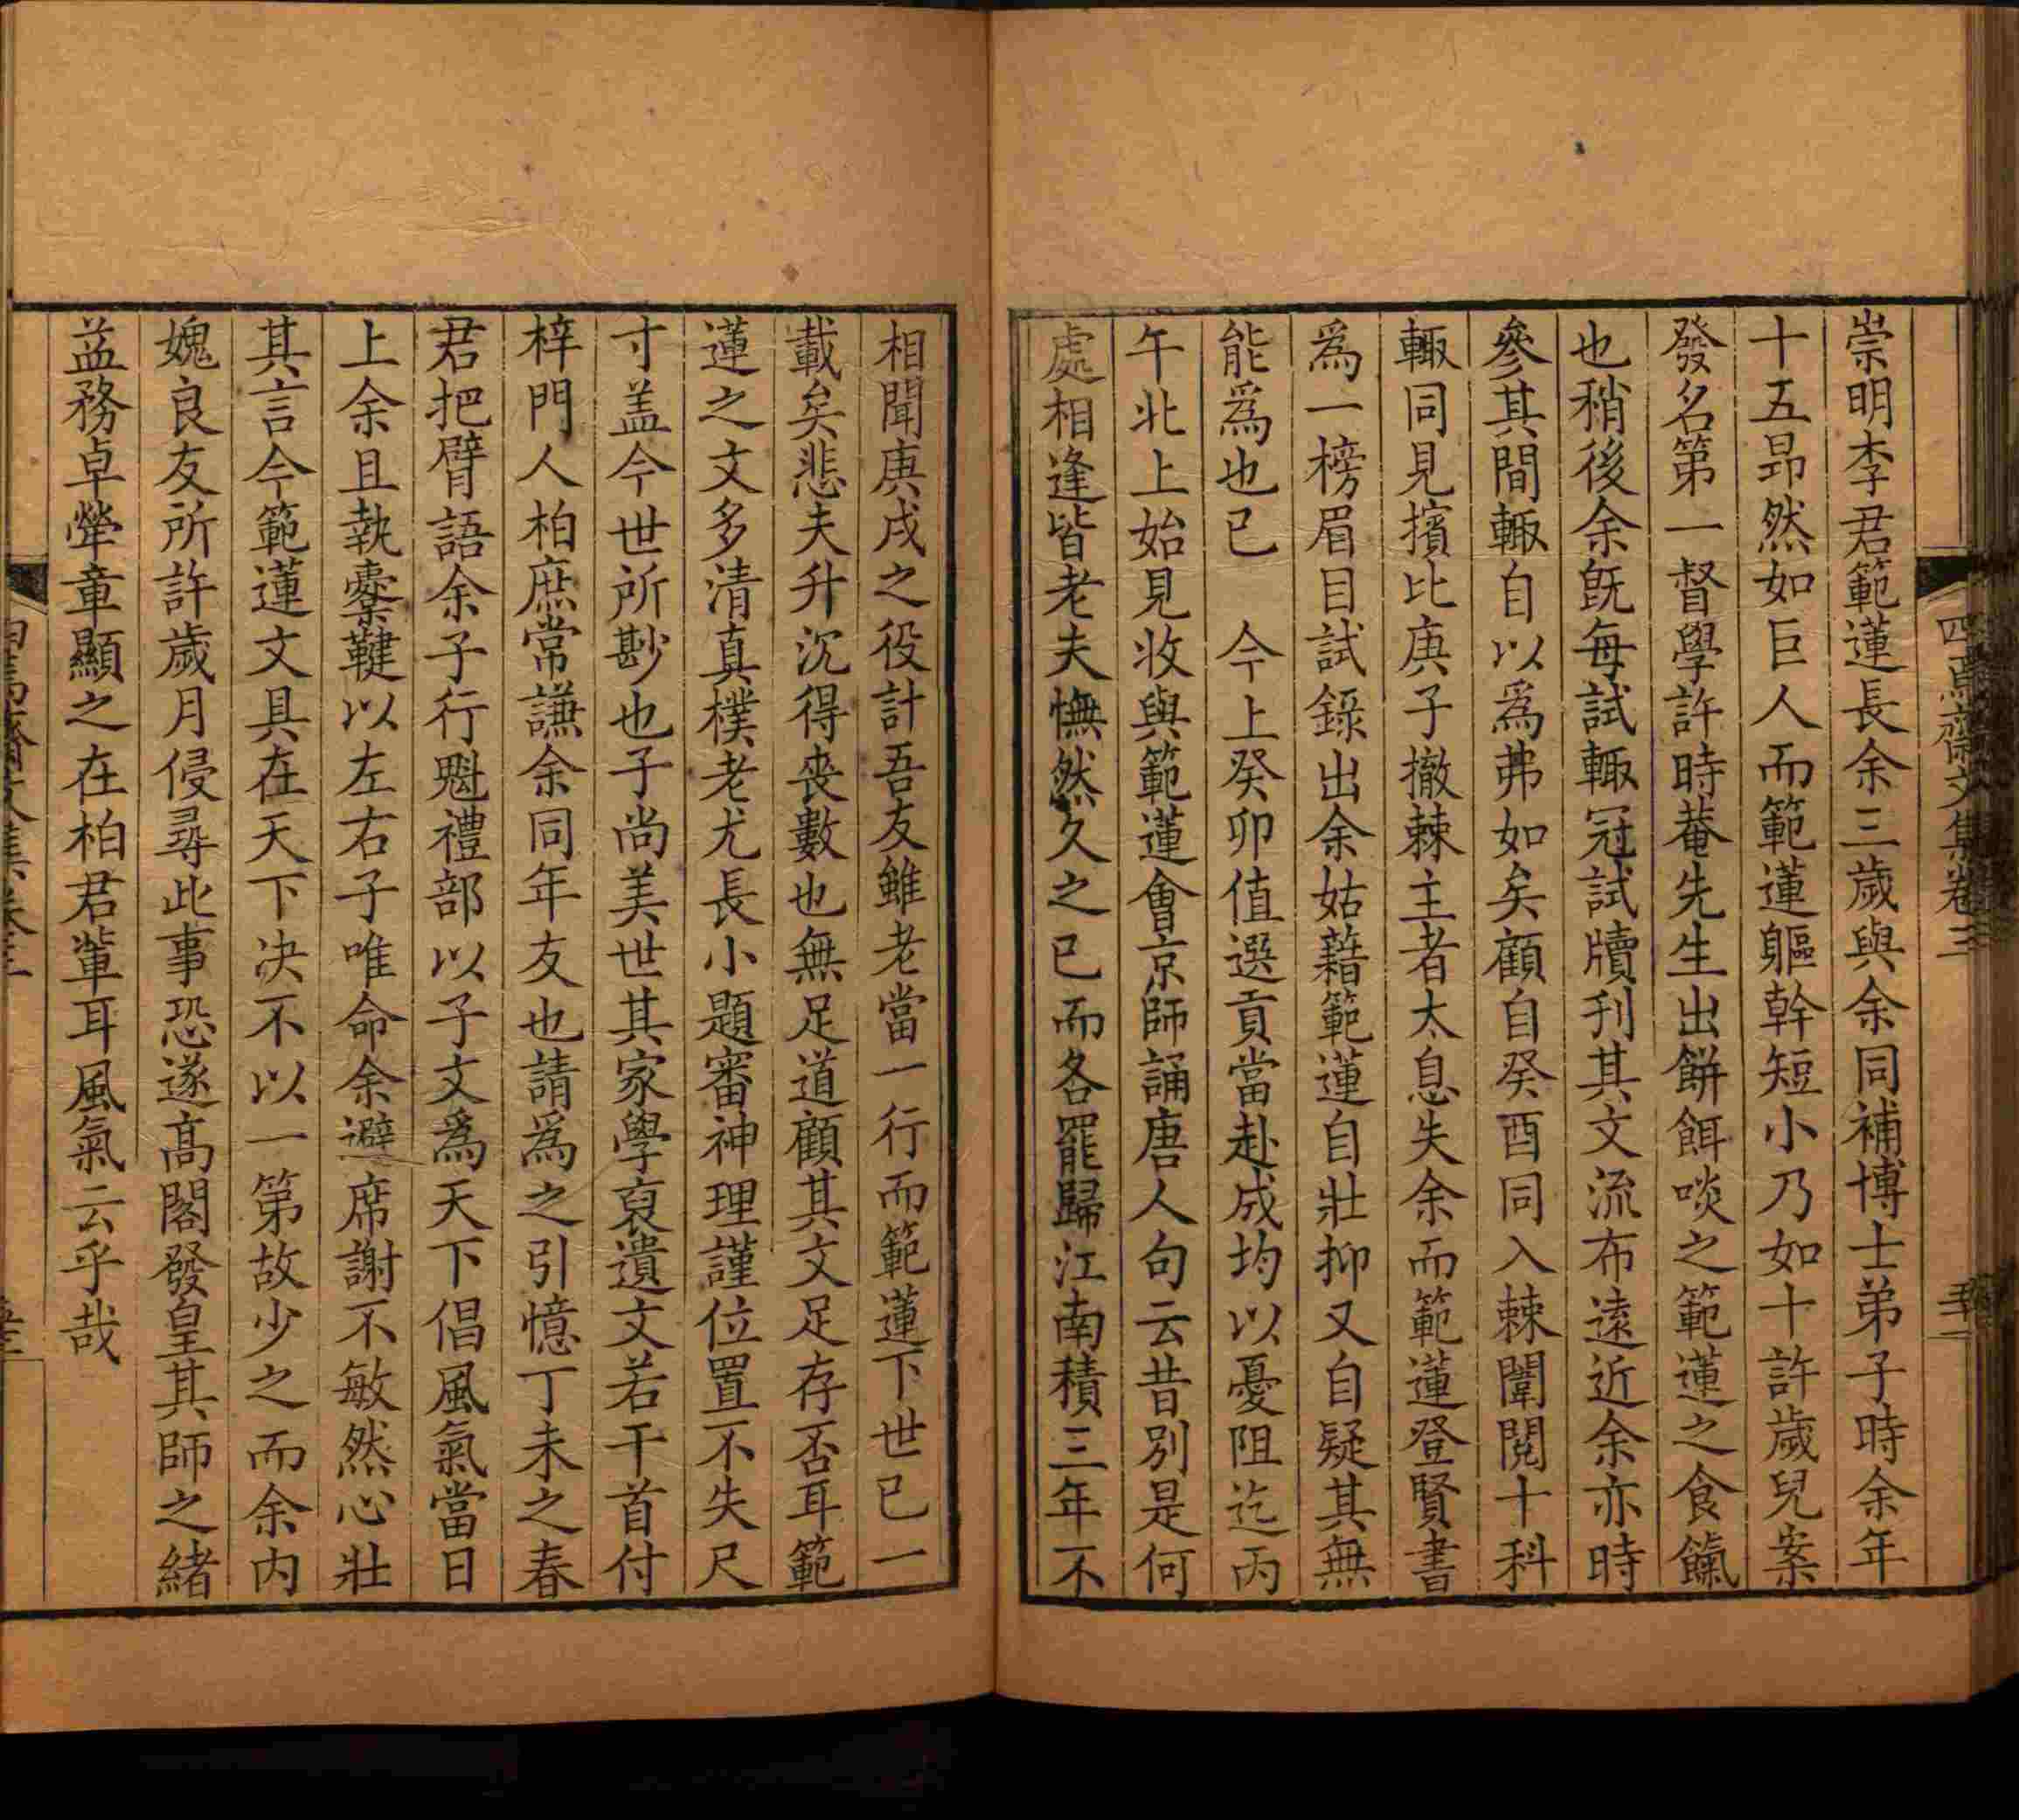 四焉齋文集卷三
崇明李君範蓮長余三歲與余同補博士弟子時余年
十五昻然如巨人而範蓮軀幹短小乃如十許歲兒案
發名第一督學許時菴先生出餅餌啖之範蓮之食餼
也稍後余旣每試輒冠試牘刋其文流布遠近余亦時
參其間輒自以爲弗如矣顧自癸酉同入棘闈閱十科
輒同見擯比庚子撤棘主者太息失余而範蓮登賢書
爲一榜眉目試錄出余姑藉範蓮自壯抑又自疑其無
能爲也已　今上癸卯値選貢當赴成均以憂阻迄丙
午北上始見收與範蓮會京師誦唐人句云昔別是何
處相逢皆老夫憮然久之已而各罷歸江南積三年不
相聞庚戌之役計吾友雖老當一行而範蓮下世已一
載矣悲夫升沉得丧數也無足道顧其文足存否耳範
蓮之文多清真樸老尤長小題審神理謹位置不失尺
寸盖今世所尠也子尚美世其家學裒遺文若干首付
梓門人柏庶常謙余同年友也請爲之引憶丁未之春
君把臂語余子行魁禮部以子文爲天下倡風氣當日
上余且執櫜鞬以左右子唯命余避席謝不敏然心壯
其言今範蓮文具在天下决不以一第故少之而余内
媿良友所許歲月侵尋此事恐遂高閣發皇其師之緒
益務卓犖章顯之在柏君輩耳風氣云乎哉